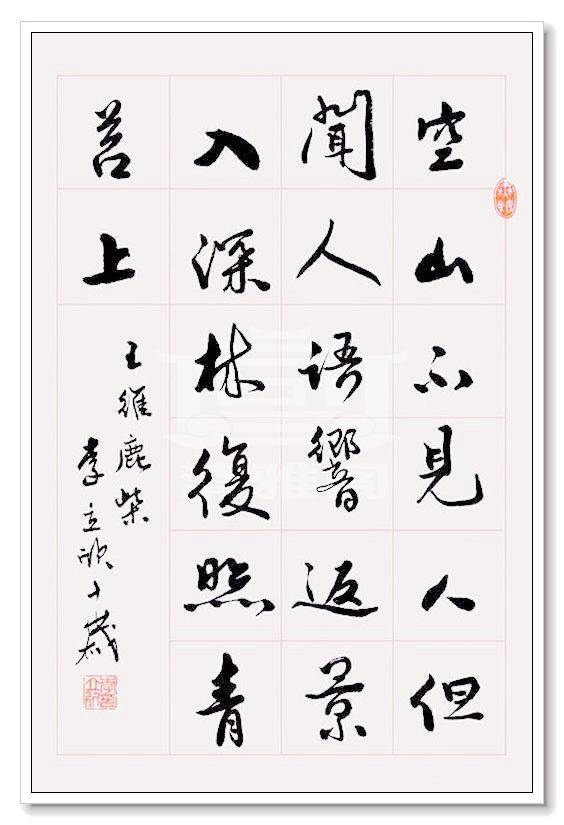 空山不見人但
聞人语響返景
入深林復照青
苔上
王維鹿柴
李立十歲